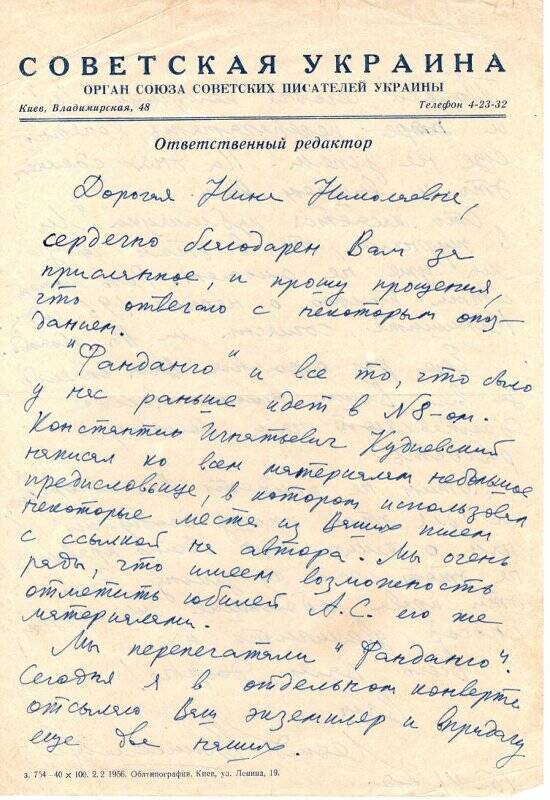 СОВЕТСКАЯ УКРАИНА
ОРГАН СОЮЗА СОВЕТСКИХ ПИСАТЕЛЕЙ УКРАИНЫ
Киев, Владимирская, 48 Телефон 4-23-32
Ответственный редактор
Дорогая Нина Николаевна,
сердечно благодарен Вам за
присланное, и прошу прощения,
что отвечаю с некоторым опоз-
данием.
"Фанданго" и все то, что было
у нас раньше идет в №8-ом.
Константин Игнатьевич Кудиевский
написал ко всем материалам небольшое
предисловьице, в котором использовал
некоторые места из Ваших писем
с ссылкой на автора. Мы очень
рады, что имеем возможность
отметить юбилей А.С. его же
материалами.
Мы перепечатали "Фанданго".
Сегодня я в отдельном конверте
отсылаю Ваш экземпляр и впридачу
еще две наших.
з. 754—40 × 100. 2.2 1956. Облтипография. Киев, ул. Ленина, 19.